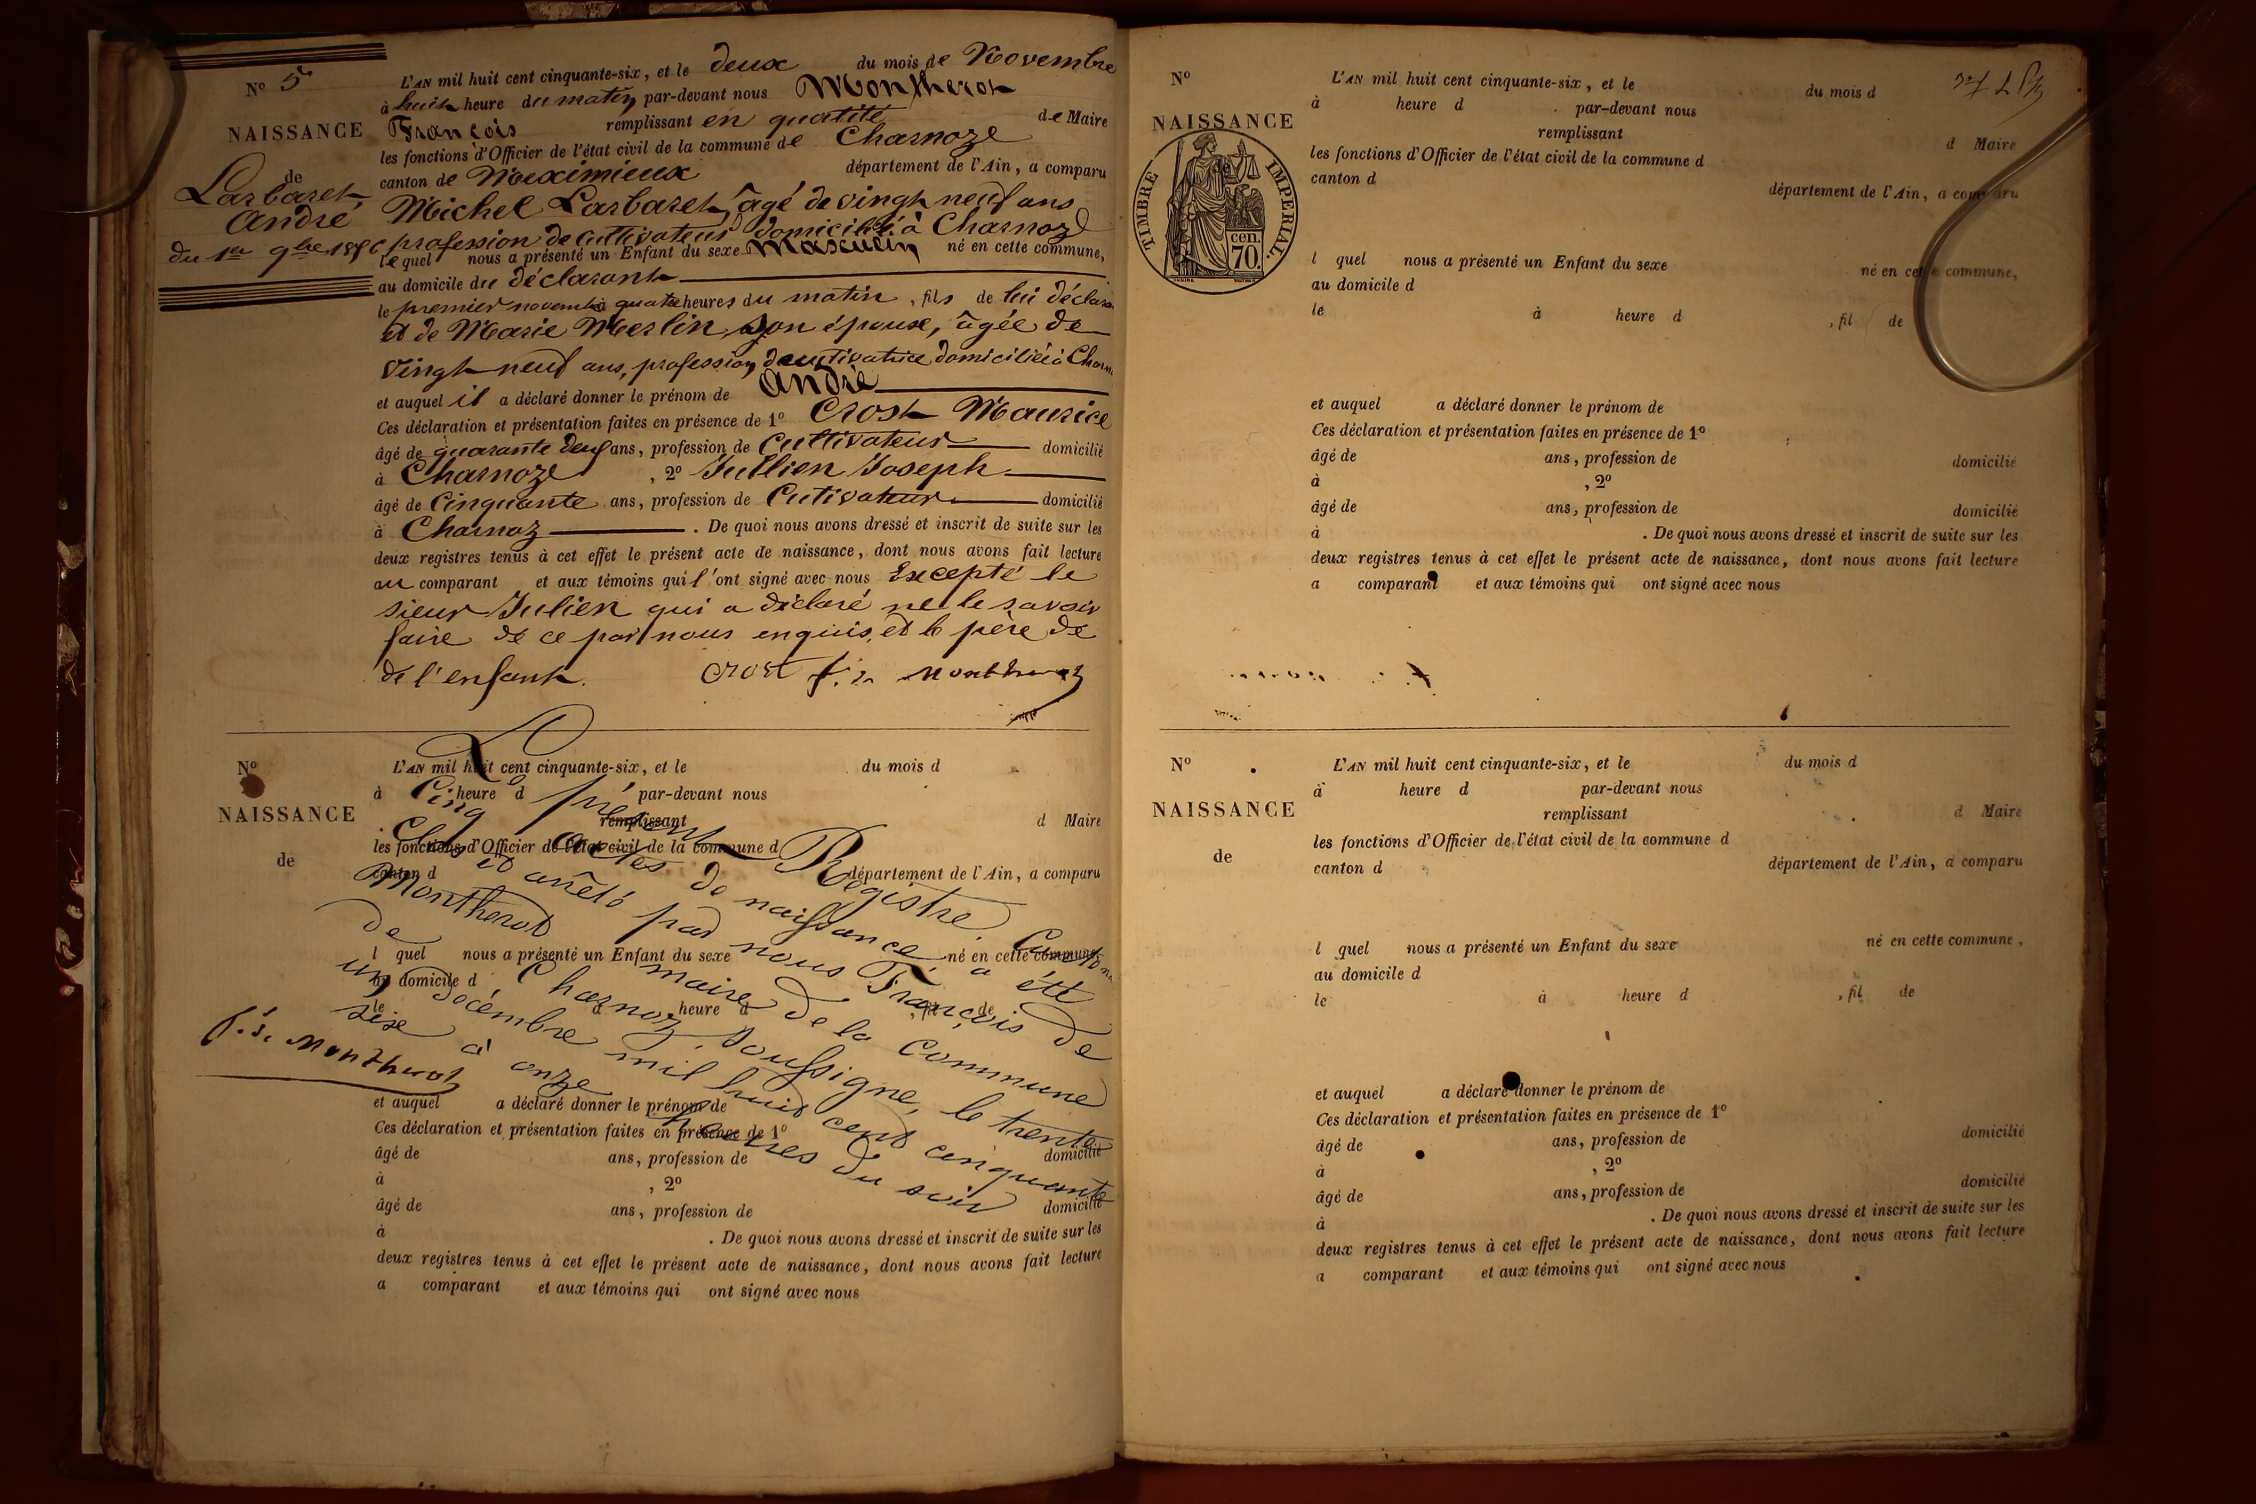 N° 5
NAISSANCE
de
Larbaret
André
du 1er 9bre 1856
L'AN mil huit cent cinquante-six, et le deux du mois de Novembre
à huit heure du matin par-devant nous Montherot
François remplissant en quatité de Maire
les fonctions d'Officier de l'état civil de la commune de Charnoze
canton de Meximieux département de l'Ain, a comparu
Michel Larbaret, âgé de vingt neuf ans
profession de cultivateur domicilié à Charnoz
lequel nous a présenté un Enfant du sexe Masculin né en cette commune,
au domicile du déclarant
le premier novembre à quatre heures du matin, fils de lui déclarant
et de Marie Merlin son épouse, âgée de
vingt neuf ans, profession de cultivatrice domiciliée à Charnoz
et auquel il a déclaré donner le prénom de André
Ces déclaration et présentation faites en présence de 1° Crost Maurice
âgé de quarante deux ans, profession de Cultivateur domicilié
à Charnoze, 2° Jullien Joseph
âgé de Cinquante ans, profession de Cutivateur domicilié
à Charnoz. De quoi nous avons dressé et inscrit de suite sur les
deux registres tenus à cet effet le présent acte de naissance, dont nous avons fait lecture
au comparant et aux témoins qui l'ont signé avec nous Excepté le
sieur Julien qui a déclaré ne le savoir
faire de ce par nous enquis, et le père de
de l'enfant. Crost f. s. Montherot
N°
NAISSANCE
de
L'AN mil huit cent cinquante-six, et le du mois d
à heure d par-devant nous
remplissant d Maire
les fonctions d'Officier de l'état civil de la commune d
canton d département de l'Ain, a comparu
l quel nous a présenté un Enfant du sexe né en cette commune,
au domicile d
le à heure d , fil de
et auquel a déclaré donner le prénom de
Ces déclaration et présentation faites en présence de 1°
âgé de ans, profession de domicilié
à , 2°
âgé de ans, profession de domicilié
à . De quoi nous avons dressé et inscrit de suite sur les
deux registres tenus à cet effet le présent acte de naissance, dont nous avons fait lecture
a comparant et aux témoins qui ont signé avec nous
Le présent Registre Contenant
Cinq actes de naissance a été
Clos et arrêté par nous François de
Montherot maire de la Commune
de Charnoz, soussigné, le trente
un décembre mil huit cent cinquante
sixe à onze heures du soir
f. s. Montherot
N°
NAISSANCE
TIMBRE IMPERIAL.
70 cen.
L'AN mil huit cent cinquante-six, et le du mois d
à heure d par-devant nous
remplissant d Maire
les fonctions d'Officier de l'état civil de la commune d
canton d département de l'Ain, a comparu
l quel nous a présenté un Enfant du sexe né en cette commune,
au domicile d
le à heure d , fil de
et auquel a déclaré donner le prénom de
Ces déclaration et présentation faites en présence de 1°
âgé de ans, profession de domicilié
à , 2°
âgé de ans, profession de domicilié
à . De quoi nous avons dressé et inscrit de suite sur les
deux registres tenus à cet effet le présent acte de naissance, dont nous avons fait lecture
a comparant et aux témoins qui ont signé avec nous
N°
NAISSANCE
de
L'AN mil huit cent cinquante-six, et le du mois d
à heure d par-devant nous
remplissant d Maire
les fonctions d'Officier de l'état civil de la commune d
canton d département de l'Ain, a comparu
l quel nous a présenté un Enfant du sexe né en cette commune,
au domicile d
le à heure d , fil de
et auquel a déclaré donner le prénom de
Ces déclaration et présentation faites en présence de 1°
âgé de ans, profession de domicilié
à , 2°
âgé de ans, profession de domicilié
à . De quoi nous avons dressé et inscrit de suite sur les
deux registres tenus à cet effet le présent acte de naissance, dont nous avons fait lecture
a comparant et aux témoins qui ont signé avec nous